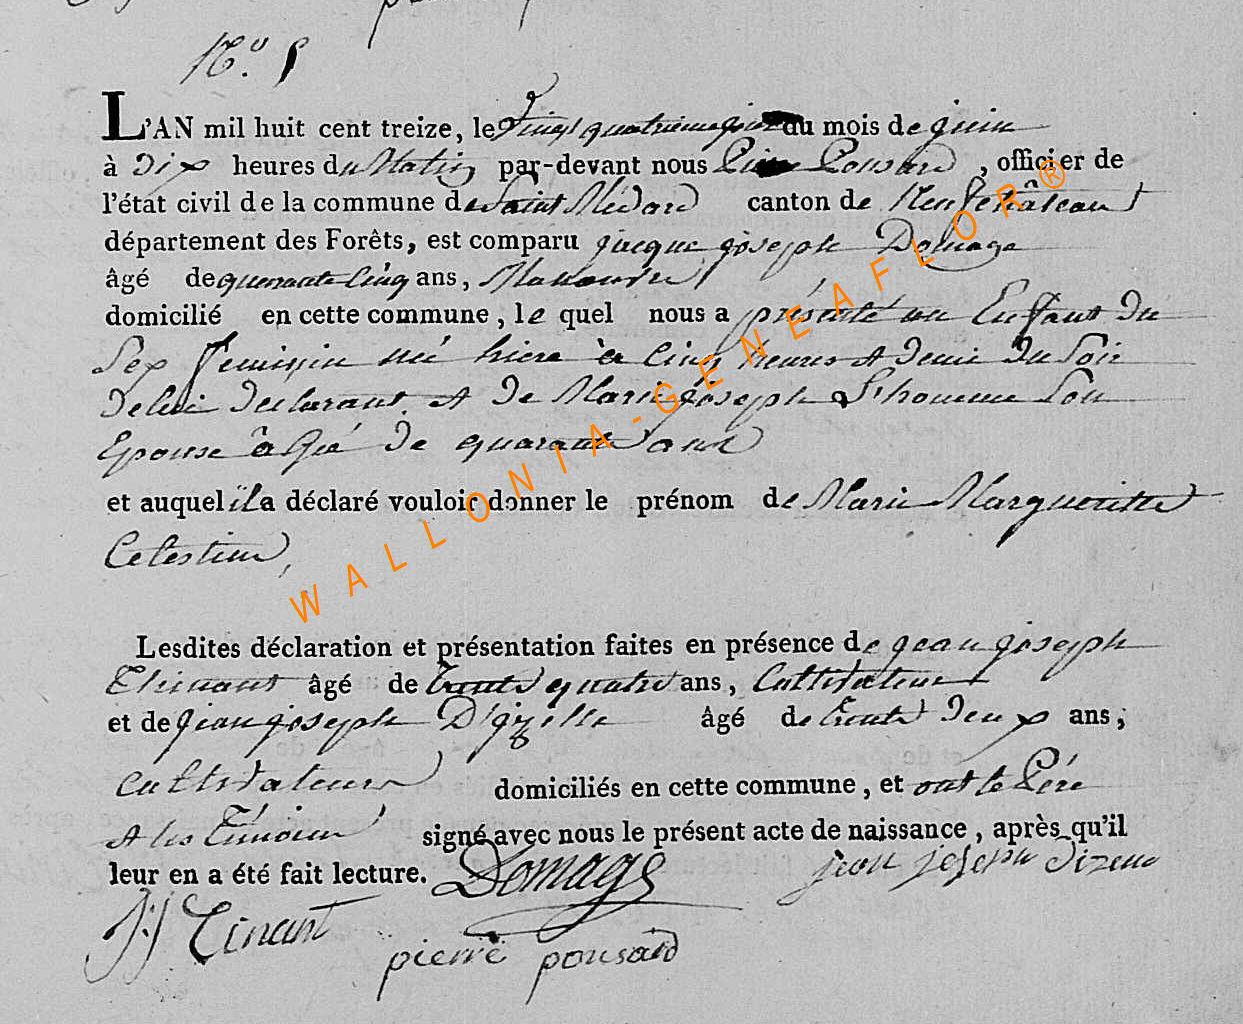 N.º 5
L'AN mil huit cent treize, le Vingt quatrieme jour du mois de juin
à Dix heures du Matin par-devant nous Pierre Pousard, officier de
l'état civil de la commune de Saint Médard canton de Neufchâteau
département des Forêts, est comparu jacque joseph Domage
âgé de quarante Cinq ans,
domicilié en cette commune, le quel nous a présenté un Enfant du
Sex feminin né hiere à Cinq heures et demie du Soir
De lui Declarant et De Marie joseph L'homme Son
Epouse âgé De quarante ans
et auquel il a déclaré vouloir donner le prénom de Marie Margueritte
Celestine,
WALLONIA-GENEAFLOR®
Lesdites déclaration et présentation faites en présence de jean joseph
Thinant âgé de trente quatre ans, Cultivateur
et de jean joseph D'izelle âgé de trente Deux ans,
Cultivateur domiciliés en cette commune, et ont le Pére
et les Témoins signé avec nous le présent acte de naissance, après qu'il
leur en a été fait lecture. Domage jean joseph
J:J Tinant
pierre pousard